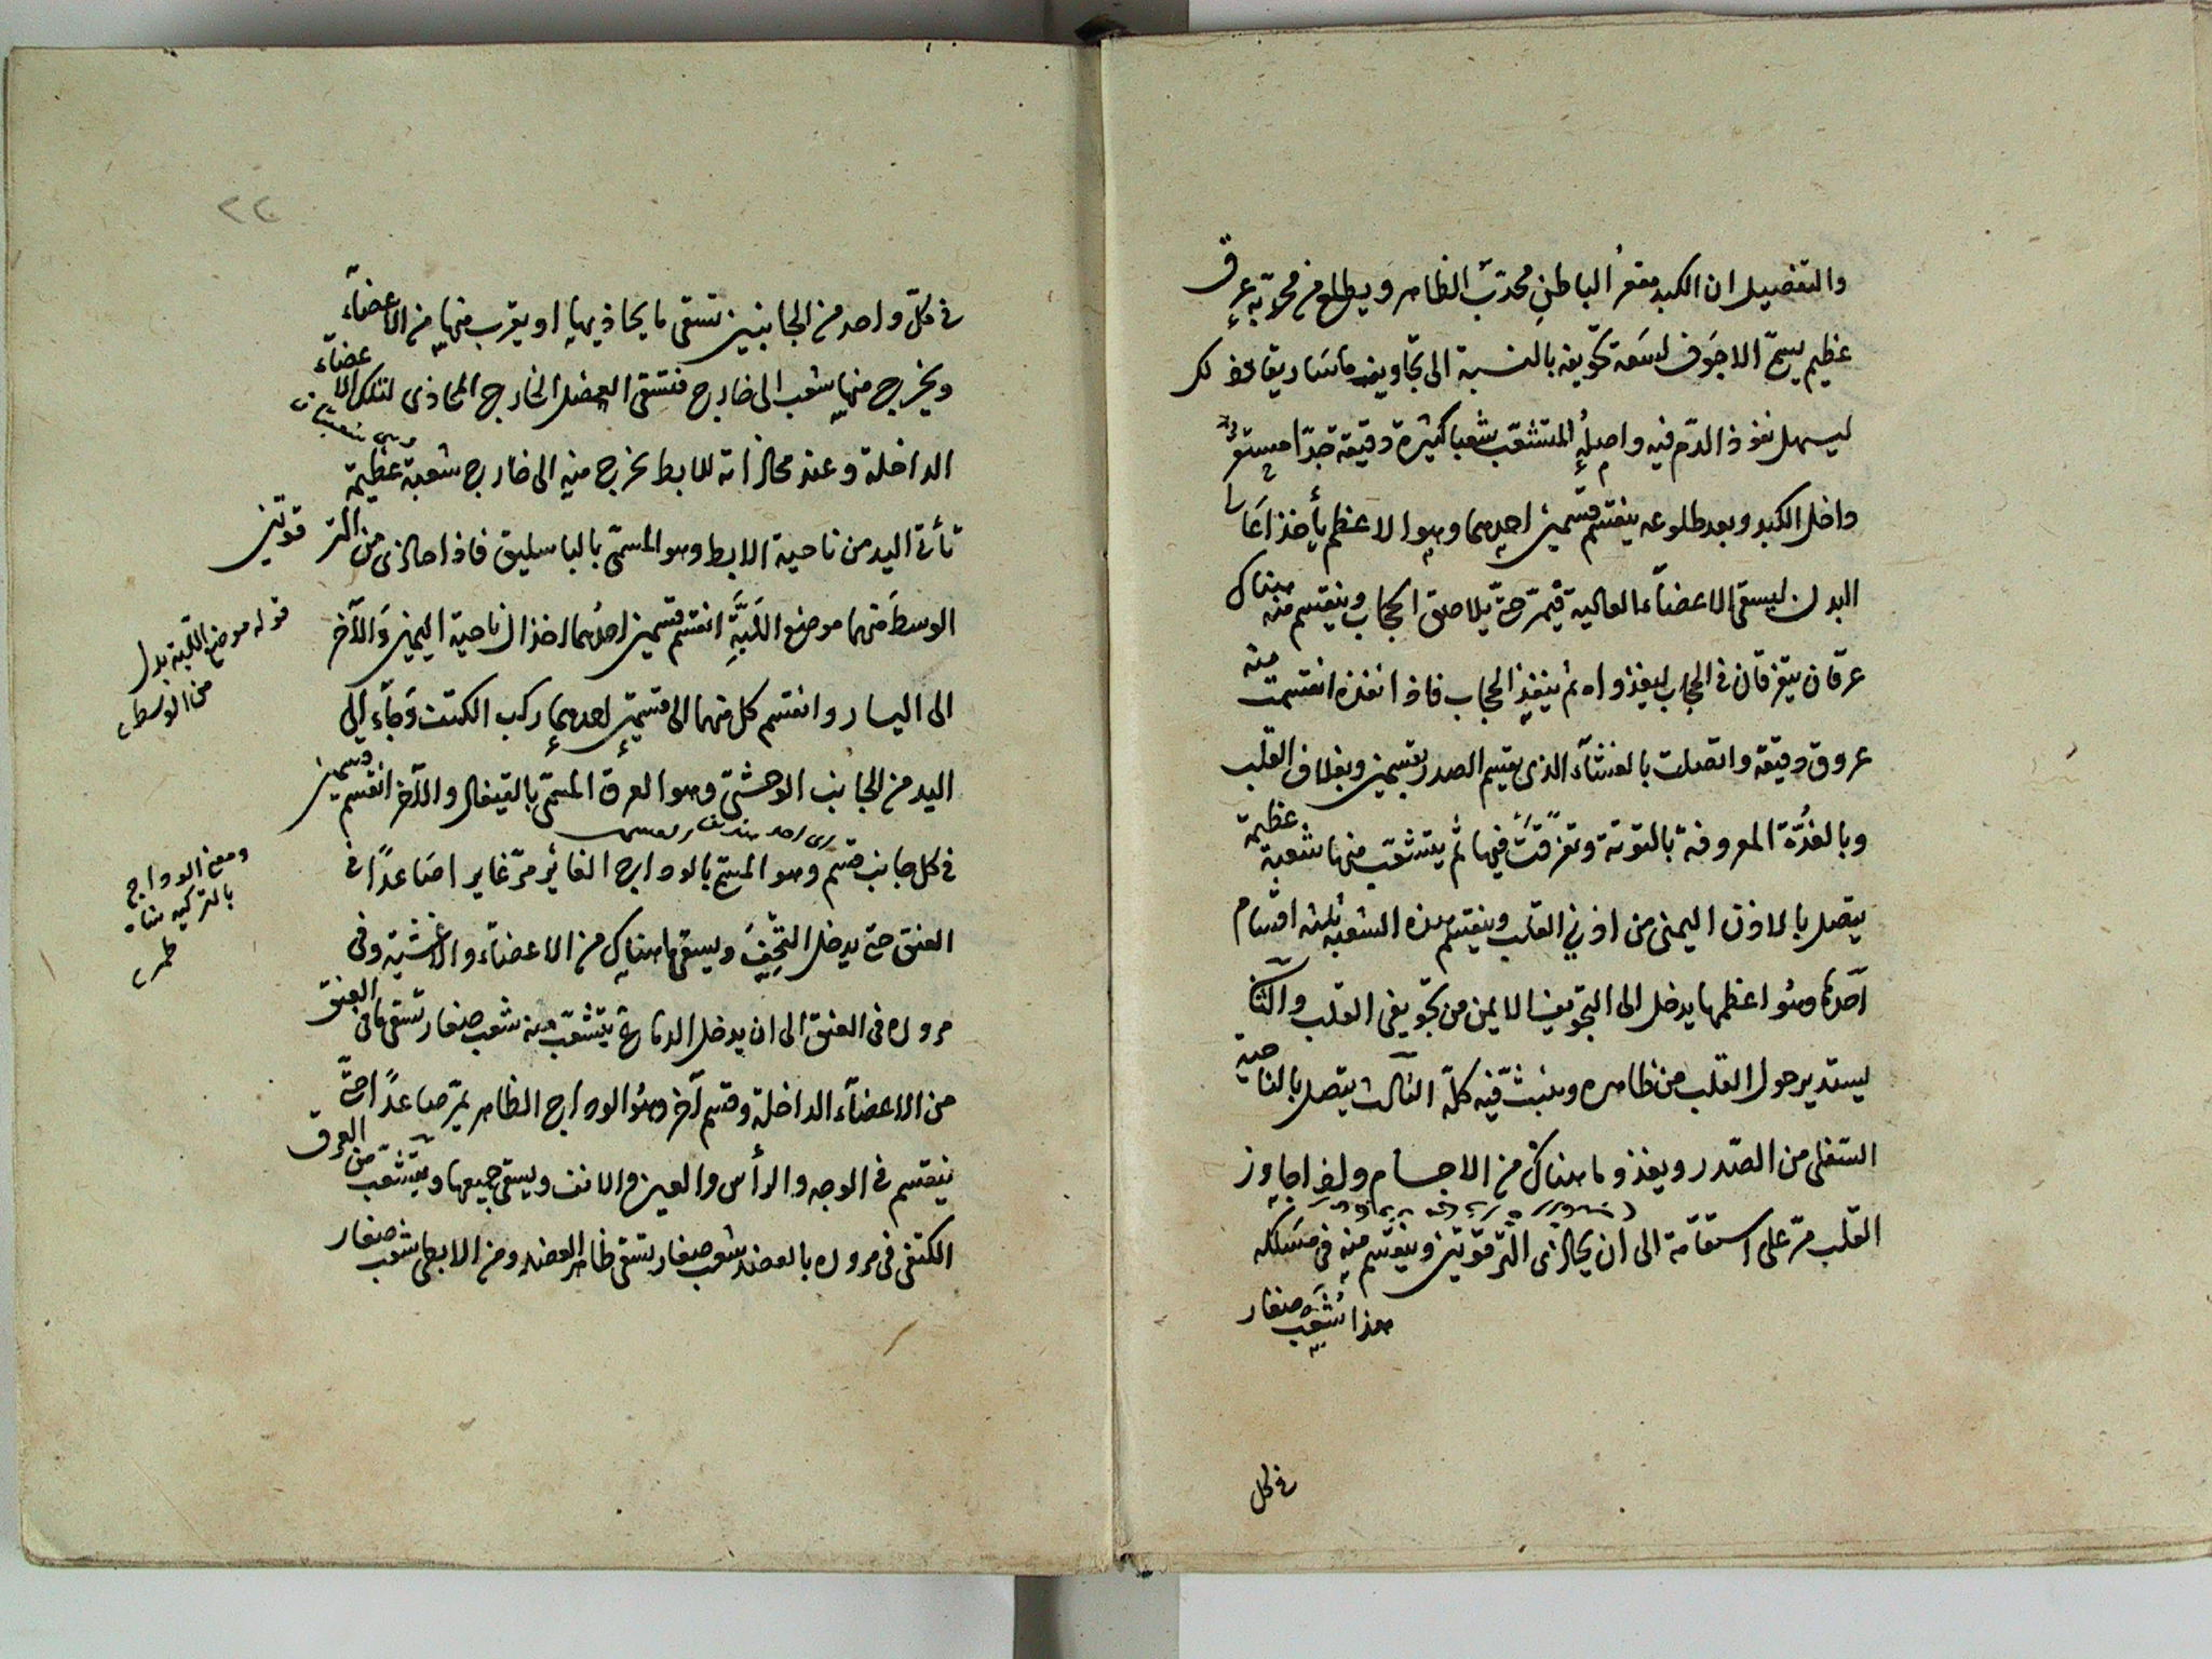 والتفصيل ان الكبد مقعرُ الباطنِ محدّبُ الظاهر ويطلع من محدّبه عرق
عظيم يسمّى الاجوَف لسَعة تجويفه بالنسبة الى تجاويف ماسَاريقا
ليسهل نفوذ الدّم فيه واصلُه المتشعّب شعبا كثيرة دقيقة جدّا
داخل الكبد وبعد طلوعه ينقسم قسمين احدهما وهو الاعظم يأخذ اعَالى
البدن ليسقى الاعضآء العالية فيمرّ حتّى يلاصق الحجاب وينقسم منه هناك
عرقان يتفرقان فى الحجاب ليغذواه ثم ينفذ الحجاب فاذا نفذه انقسمت منه
عروق دقيقة واتصلت بالغشآء الذى يقسم الصدر بقسمين وبغلاف القلب
وبالغُدّة المعروفة بالتوتة وتفرّقتْ فيها ثم يتشعّب منها شعبة عظيمة
يتصل بالاذن اليمنى من اذنى القلب وينقسم هذه الشعبة ثلثه اقسَام
احدها وهُو اعظمها يدخل الى التجويف الايمن من تجويفى القلب والثّانى
يستدير حول القلب من ظاهره وينبثّ فيه كلّه الثالث يتصل بالناحية
السّفلى من الصّدر ويغذو ما هناك من الاجسام واذا جاوز
القلب مرّ على استقامة الى ان يحاذى التّرقوتين وينقسم منه فى مَسلكه
هذا شُعَب صغار
فى كل
٢٢
فى كلّ واحد من الجانبين تسقى ما يحاذيها او يقرب منها من الاعضآء
ويخرج منها شعب الى خارج فتسقى العضل الخارج المحاذى لتلك الاعضآء
الداخلة وعند محاذاته للابط يخرج منه الى خارج شعبة عظيمة
تأتى اليد من ناحية الابط وهو المسمّى بالباسليق فاذا حاذى من الترقوتين
الوسطَ منهما موضع اللَبَّةِ انقسم قسمين احدُهما اخذ الى ناحية اليمين وَالآخر
الى اليسار وانقسم كل منهما الى قسمين احدهما ركب الكتف وَجآء الى
اليد من الجانب الوحشىّ وهو العرق المسمّى بالقيفال والآخر انقسم قسمين
فى كل جانب قسم وهو المسمّى بالوداج الغائر مرّ غايرا صَاعدًا فى
العنق حتى يدخل القِحفَ ويسقى ما هناك من الاعضآء والاغشية وفى
مروره فى العنق الى ان يدخل الدماغ يتشعّب منه شعب صغار تسقى ما فى العنق
من الاعضآء الداخلة وقسم آخر وهُو الوداج الظاهر يمرّ صَاعدًا حتّى
ينقسم فى الوجه والرأس والعين والانف ويسقى جميعها ويتشعّب من العرق
الكتفى فى مروره بالعضد شعب صغار تسقى ظاهر العضد ومن الابطى شعب صغار
قوله موضع اللّبة بدل
من الوسط
ومعنى الوداج
بالتركيه شاه
طمر